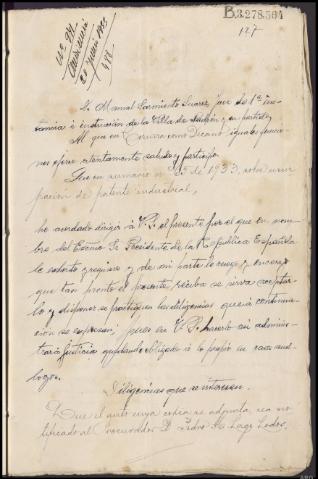 B.3.278.504
127
D. Manuel Sarmiento Suarez, Juez de 1ª Ins-
tancia é instruccion de la Villa de y su partido,
Al que en Coruña como Decano iguales funcio-
nes ejerce atentamente saludo y participo:
Que en sumario nº de 1933, sobre usur-
pacion de patente industrial,
he acordado dirigir á V.S. el presente por el que en nom-
bre del Excmo Sr Presidente de la Republica Española
le exhorto y requiero y de mi parte le ruego y encargo
que tan pronto el presente reciba se sirva aceptar-
lo y disponer se practiquen las diligencias que á continua-
cion se expresan; pues en V.S. hacerlo asi adminis-
trará Justicia quedando obligado á lo propio en casos aná-
logos.
Diligencias que se interesan.
Que el auto cuya copia se adjunta, sea no-
tificado al Procurador D. Pedro Lage